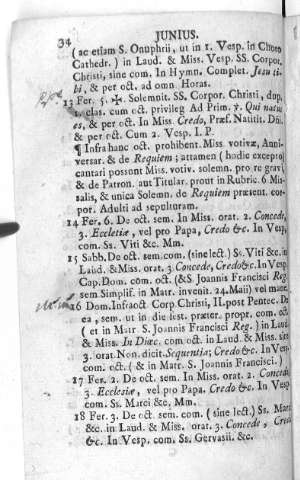 34 JUNIUS.
( ac etiam S. Onuphrii, ut in 1. Vesp. in Choro
Cathedr. ) in Laud. & Miss. Vesp. SS. Corpor.
Christi, sine com. In Hymn. Complet. Jesu ti-
bi, & per oct. ad omn Horas.
13 Fer. 5. ✠. Solemnit. SS. Corpor. Christi, dup.
1. clas. cum oct. privileg Ad Prim. ℣. Qui natus
es, & per oct. In Miss. Credo, Præf. Natitit. Dñi.
& per oct. Cum 2. Vesp. I. P.
¶ Infra hanc oct. prohibent. Miss. votivæ, Anni-
versar. & de Requiem; attamen ( hodie excepto)
cantari possunt Miss. votiv. solemn. pro re gravi,
& de Patron. aut Titular. prout in Rubric. 6 Mis-
salis, & unica Solemn. de Requiem præsent. cor-
por. Adulti ad sepulturam.
14 Fer. 6. De oct. sem. In Miss. orat. 2. Concede,
3. Ecclesiæ, vel pro Papa, Credo &c. In Vesp.
com. Ss. Viti &c. Mm.
15 Sabb. De oct. sem. com. (sine lect.) Ss. Viti &c. in
Laud. & Miss. orat. 3 Concede, Credo &c. In Vesp.
Cap. Dom. com. oct. (& S. Joannis Francisci Reg.
sem Simplif. in Matr. invenit. 24. Maii) vel mane.
16 Dom. Infra oct Corp. Christi, II. post Pentec. De
ea, sem. ut in die fest. præter. propr. com. oct.
( et in Matr. S. Joannis Francisci Reg. ) in Laud.
& Miss. In Diœc. com. oct. in Laud. & Miss. sine
3. orat. Non dicit. Sequentia; Credo &c. In Vesp.
com. oct. ( & in Matr. S. Joannis Francisci. )
17 Fer. 2. De oct. sem. In Miss. orat. 2. Concede,
3. Ecclesiæ, vel pro Papa. Credo &c. In Vesp.
com. Ss. Marci &c, Mm.
18 Fer. 3. De oct. sem. com. ( sine lect.) Ss. Marci
&c. in Laud. & Miss. orat. 3. Concede, Credo
&c. In Vesp. com. Ss. Gervasii &c.